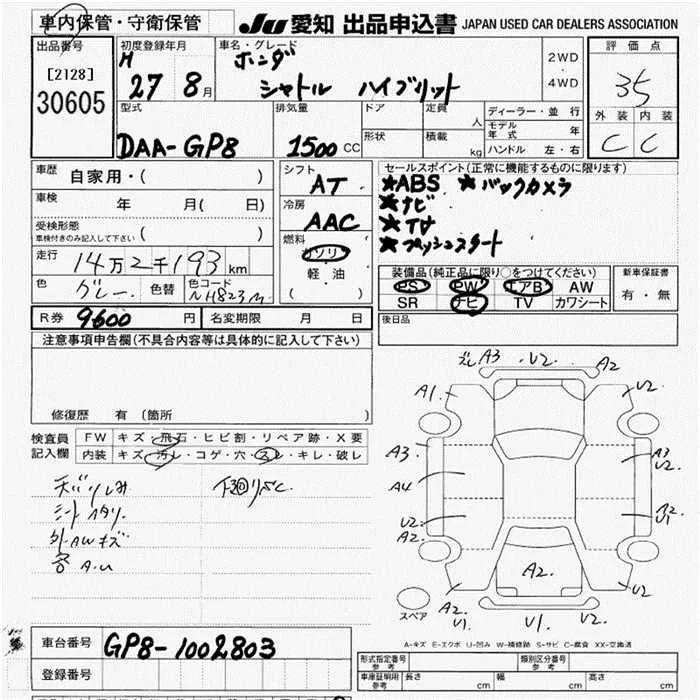 車内保管・守衛保管
JU 愛知 出品申込書 JAPAN USED CAR DEALERS ASSOCIATION
出品番号
[2128]
30605
初度登録年月
H 27 8月
車名・グレード
ホンダ
シャトル ハイブリット
2WD
・
4WD
評価点
3.5
外装 内装
C C
型式
DAA-GP8
排気量
1500 CC
ドア
形状
定員
人
積載
kg
ディーラー・並行
モデル年式 年
ハンドル 左・右
車歴
自家用・( )
車検
年 月( 日)
受検形態
車検付きのみ記入して下さい ( )
走行
14万2千193 km
色
グレー
色替
色コード
NH823M
シフト
AT
冷房
AAC
燃料
ガソリン
軽・油
( )
セールスポイント(正常に機能するものに限ります)
★ABS ★バックカメラ
★ナビ
★TV
★プッシュスタート
装備品(純正品に限り○をつけてください)
PS PW エアB AW
SR ナビ TV カワシート
新車保証書
有・無
R券 9600 円
名変期限 月 日
後日品
注意事項申告欄(不具合内容等は具体的に記入して下さい)
修復歴 有 〔箇所 〕
検査員記入欄
FW キズ・飛石・ヒビ割・リペア跡・X要
内装 キズ・汚レ・コゲ・穴・スレ・キレ・破レ
天バリしみ
シートヘタリ
外AWキズ
各A.U
下回りさビ
ズレ A3 V2 A2
A1 V2
A3 A3 V2
A4
V2 A2 A2 U1
A2
A2 V1 V2 V2
スペア
A-キズ E-エクボ U-凹み W-補修跡 S-サビ C-腐食 XX-交換済
車台番号
GP8-1002803
登録番号
形式指定番号 参考
類別区分番号 参考
車庫証明用 参考
長さ cm
幅 cm
高さ cm